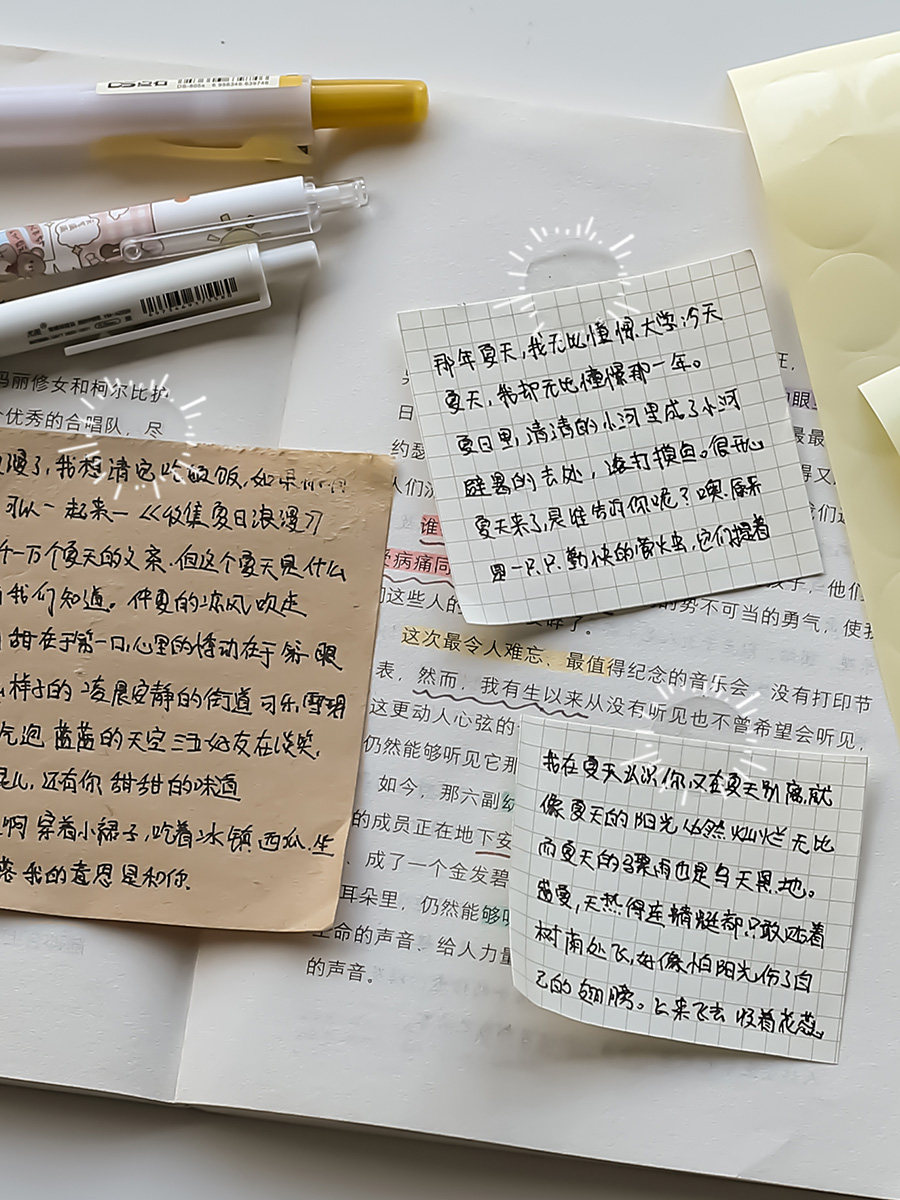 DS-806a 6 956346 639746
玛丽修女和柯尔比护
个优秀的合唱队，尽
那年夏天，我无比憧憬大学，今天
夏天，我却无比憧憬那一年。
夏日里，清清的小河里成了小河
避暑的去处，逐打摸鱼。很开心
夏天来了，是谁告诉你呢？噢，原来
是一只只勤快的萤火虫，它们提着
我想请它吃
可以一起来一《收集夏日浪漫》
千一万个夏天的文案，但这个夏天是什么
我们知道。仲夏的凉风吹走
甜在于第一口，心里的悸动在于第一眼
样子的 凌晨安静的街道 可乐，雪碧
气泡 蓝蓝的天空 三五好友在谈笑，
还有你 甜甜的味道
啊 穿着小裙子，吃着冰镇西瓜，坐
落 我的意思是和你.
日
约瑟
人们沉
谁
病痛同
这些人的
势不可当的勇气，使我
这次最令人难忘、最值得纪念的音乐会，没有打印节
表，然而，我有生以来从没有听见也不曾希望会听见，
这更动人心弦的
仍然能够听见它那
如今，那六副
的成员正在地下安
成了一个金发碧
耳朵里，仍然能够听
生命的声音、给人力量
的声音。
我在夏天认识你，又在夏天别离，就
像夏天的阳光 依然灿烂无比
而夏天的骤雨也是与天黑地。
盛夏，天热得连蜻蜓都只敢贴着
树荫处飞，好像怕阳光伤了自
己的翅膀。上来飞去 吸着花蕊